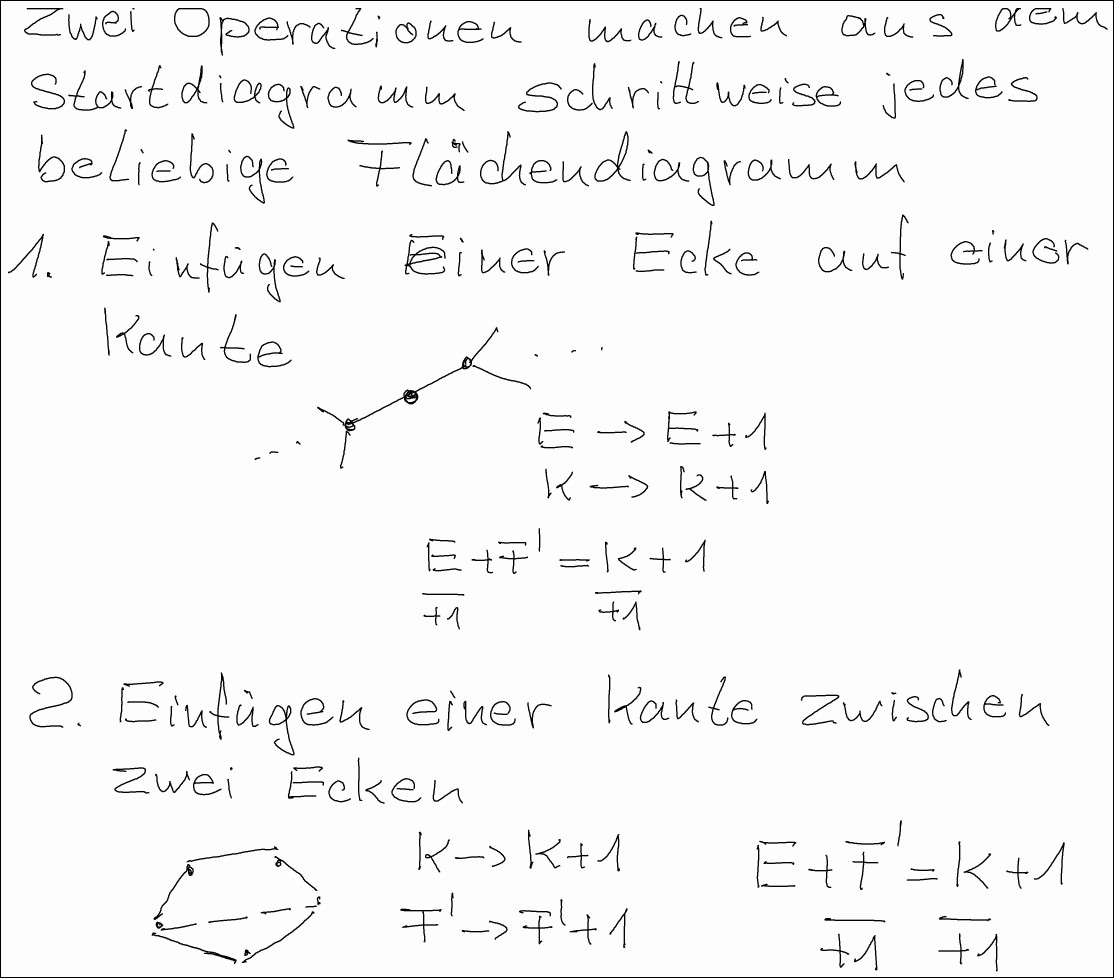 Zwei Operationen machen aus dem
Startdiagramm schrittweise jedes
beliebige Flächendiagramm
1. Einfügen Einer Ecke auf einer
Kante
E -> E+1
K -> K+1
E+F' = K+1
+1 +1
2. Einfügen einer Kante zwischen
zwei Ecken
K -> K+1
F' -> F'+1
E+F' = K+1
+1 +1